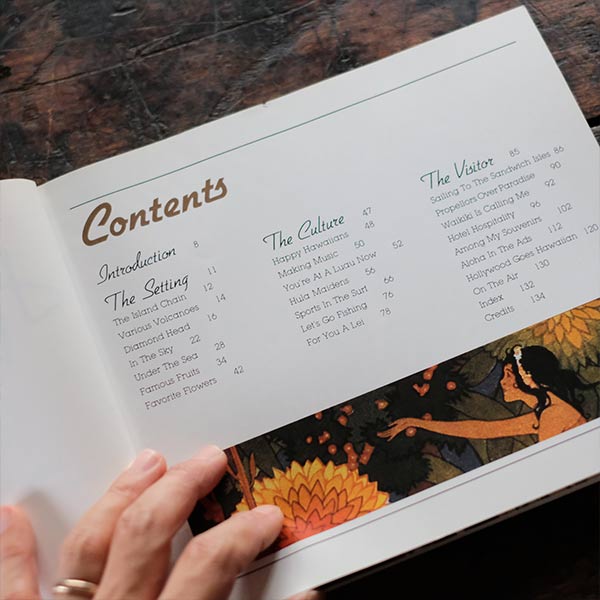 Contents
Introduction 8
The Setting 11
The Island Chain 12
Various Volcanoes 14
Diamond Head 16
In The Sky 22
Under The Sea 28
Famous Fruits 34
Favorite Flowers 42
The Culture 47
Happy Hawaiians 48
Making Music 50
You're At A Luau Now 52
Hula Maidens 56
Sports In The Surf 66
Let's Go Fishing 76
For You A Lei 78
The Visitor 85
Sailing To The Sandwich Isles 86
Propellors Over Paradise 90
Waikiki Is Calling Me 92
Hotel Hospitality 96
Among My Souvenirs 102
Aloha In The Ads 112
Hollywood Goes Hawaiian 120
On The Air 130
Index 132
Credits 134